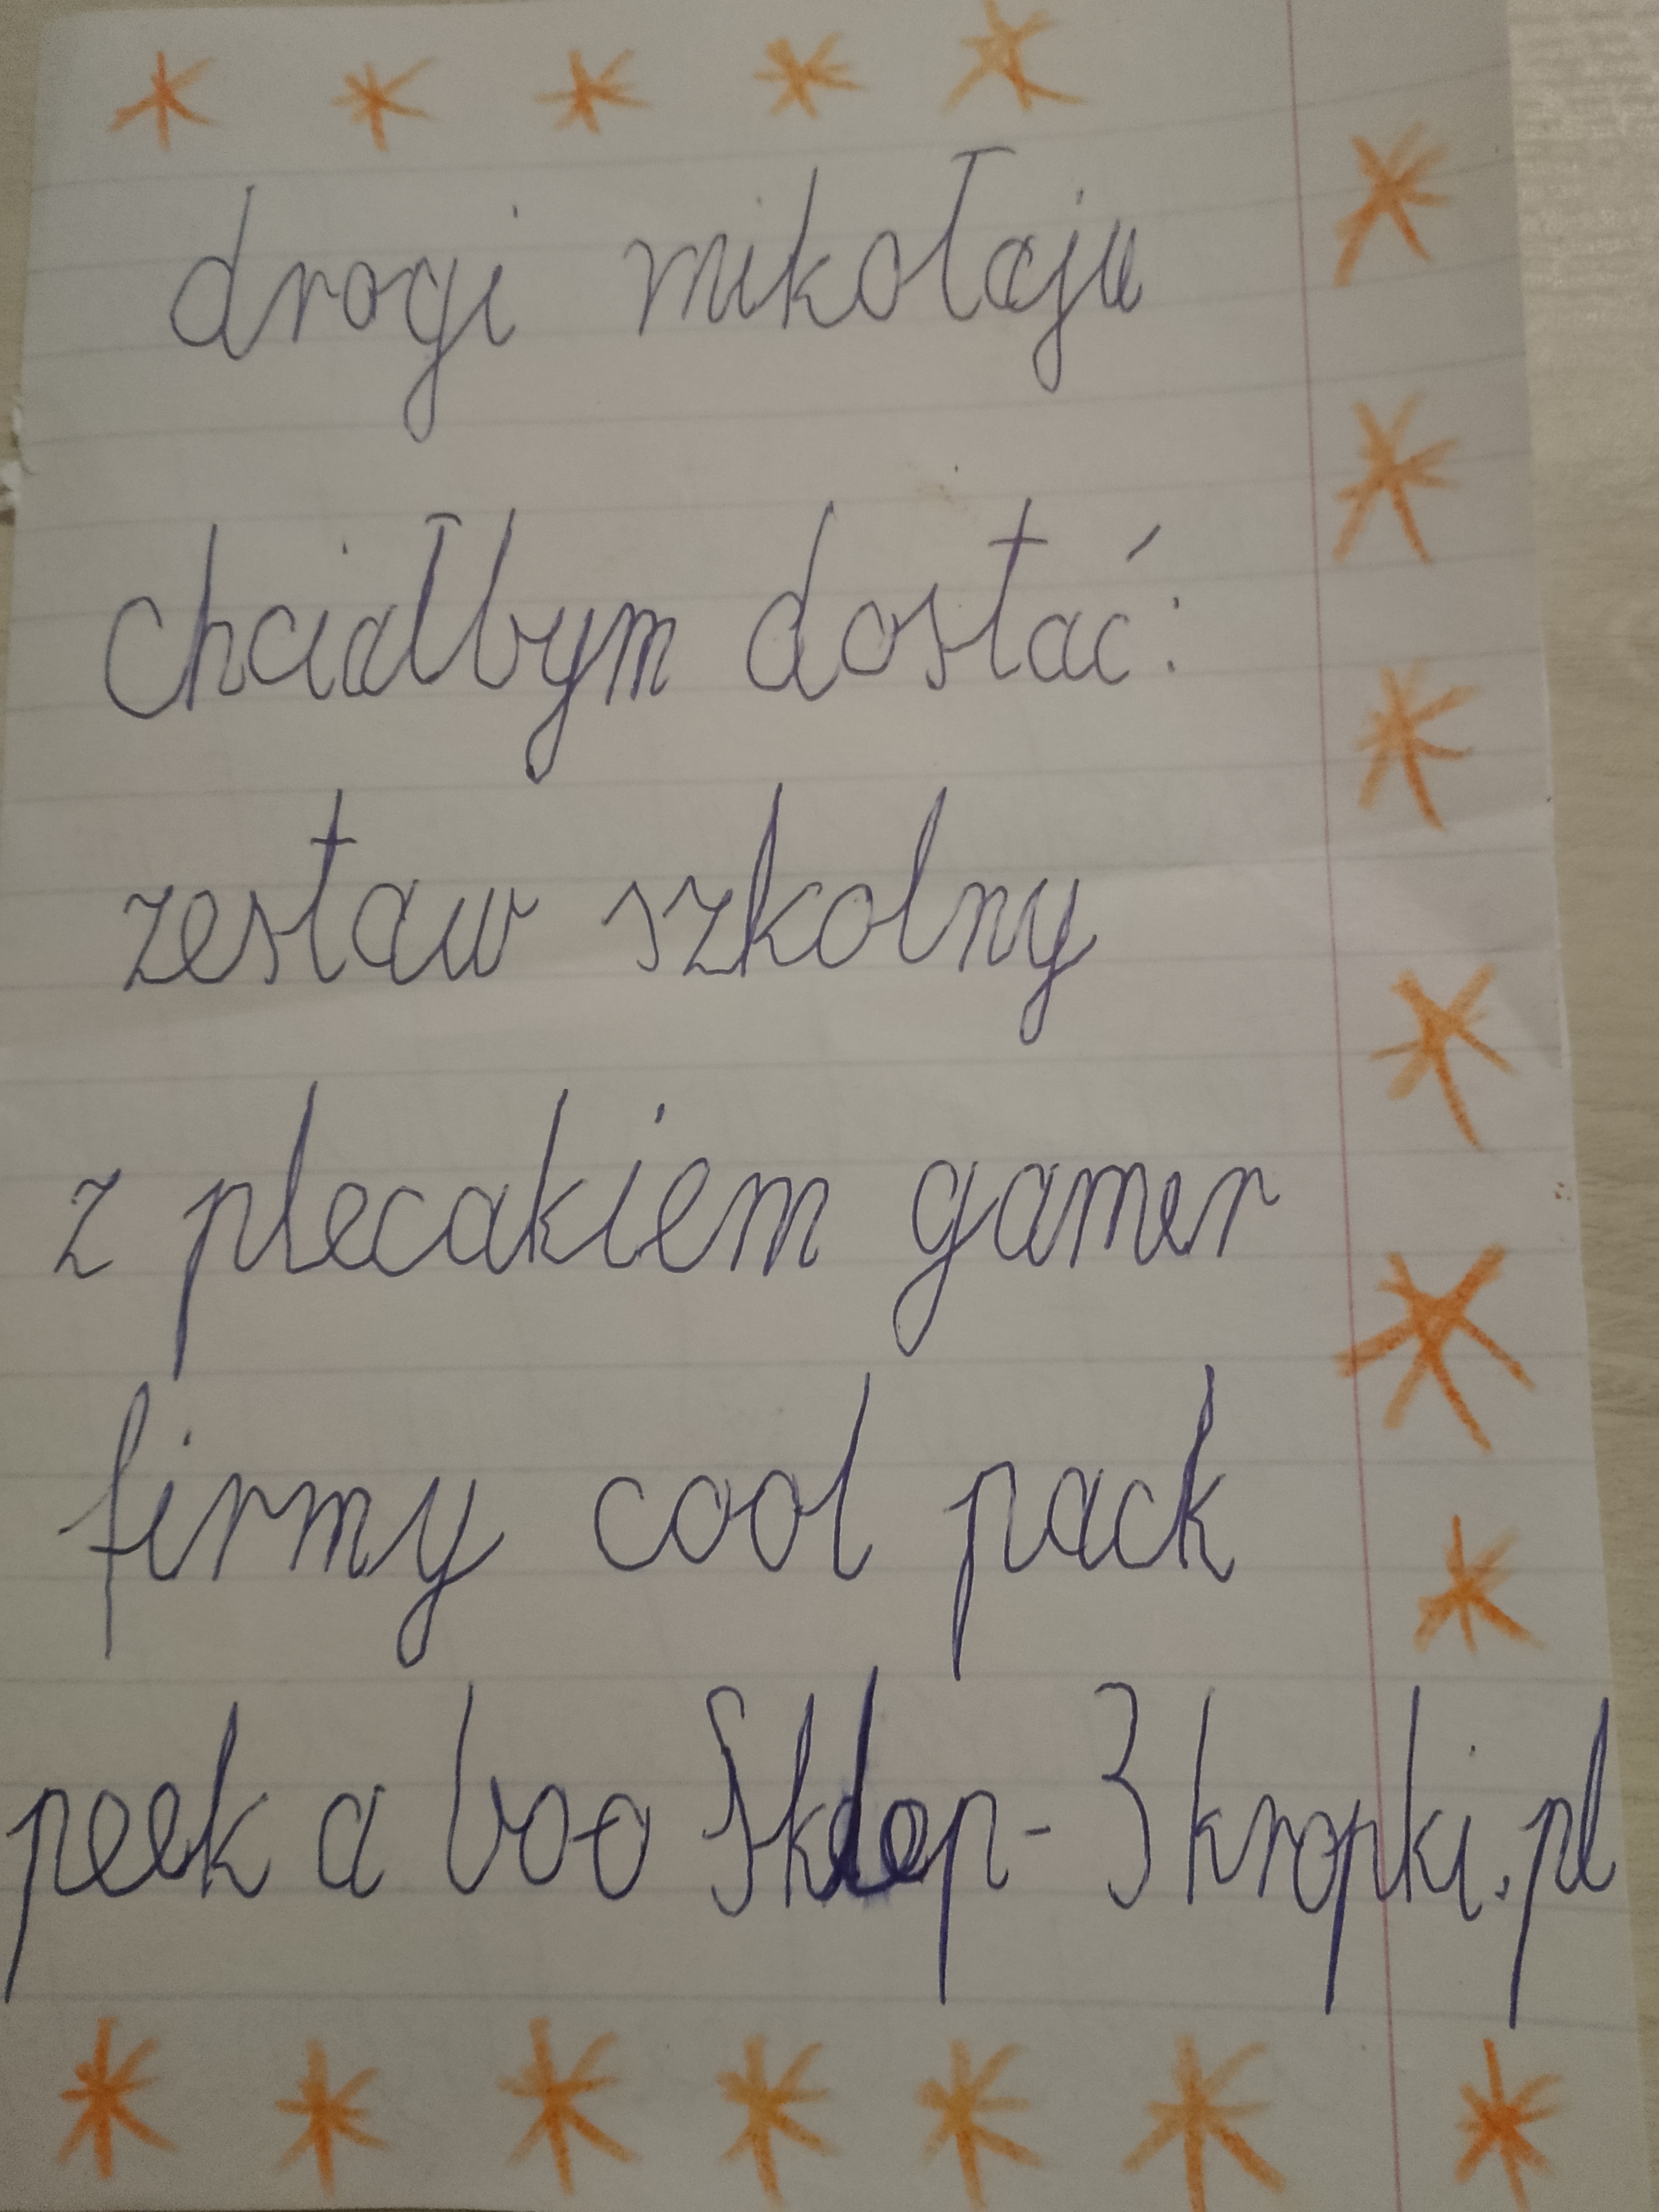 drogi mikołaju
chciałbym dostać:
zestaw szkolny
z plecakiem gamer
firmy cool pack
peek a boo Sklep- 3kropki.pl